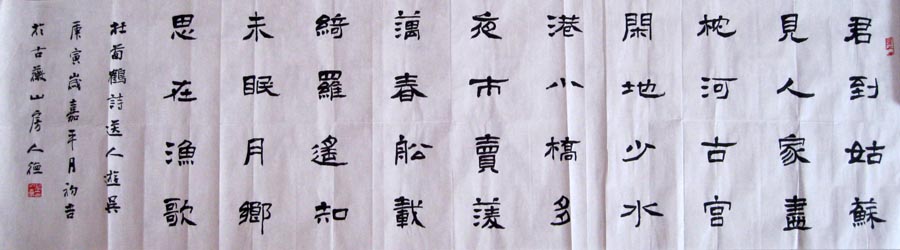 君到姑蘇
見人家盡
枕河古宮
閑地少水
港小橋多
夜市賣蔆
蕅春舩載
綺羅遙知
未眠月鄉
思在漁歌
杜荀鶴詩送人遊吳
庚寅歲嘉平月初吉
於古山房人